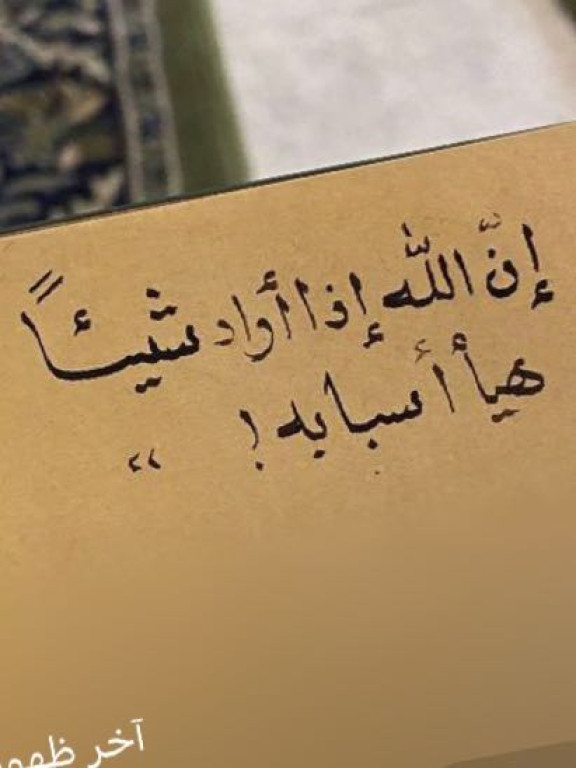 إنّ الله إذا أراد شيئاً
هيأ أسبابه !
"
آخر ظهو